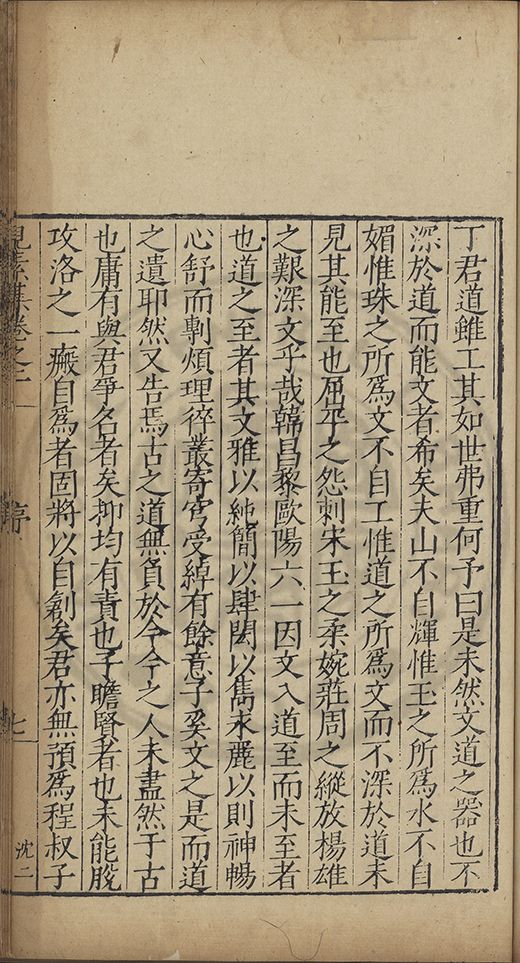 丁君道雖工其如世弗重何予曰是未然文道之器也不
深於道而能文者希矣夫山不自輝惟玉之所爲水不自
媚惟珠之所爲文不自工惟道之所爲文而不深於道未
見其能至也屈平之怨刺宋玉之柔婉莊周之縱放楊雄
之艱深文乎哉韓昌黎歐陽六一因文入道至而未至者
也道之至者其文雅以純簡以肆閎以雋永麗以則神暢
心舒而剸煩理猝叢寄窅受綽有餘意子奚文之是而道
之遺耶然又告焉古之道無負於今今之人未盡然于古
也庸有與君爭名者矣抑均有責也子瞻賢者也未能脫
攻洛之一瘢自爲者固將以自創矣君亦無預爲程叔子
見素集卷之二
序
七
沈二